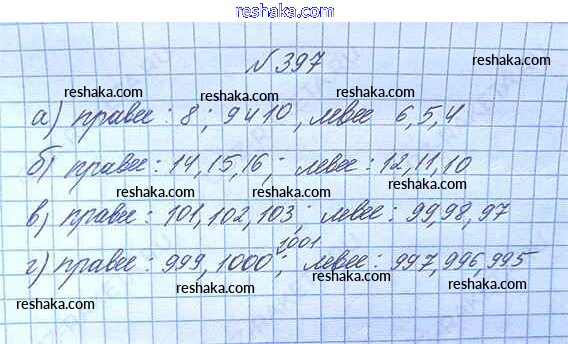 reshaka.com
№ 397
reshaka.com reshaka.com reshaka.com
а) правее : 8 ; 9 и 10 , левее 6, 5, 4
reshaka.com reshaka.com reshaka.com
б) правее : 14, 15, 16 ; левее : 12, 11, 10
reshaka.com reshaka.com reshaka.com
в) правее : 101, 102, 103 ; левее : 99, 98, 97
reshaka.com reshaka.com reshaka.com
1001
г) правее : 999, 1000 ; левее : 997, 996, 995
reshaka.com reshaka.com reshaka.com